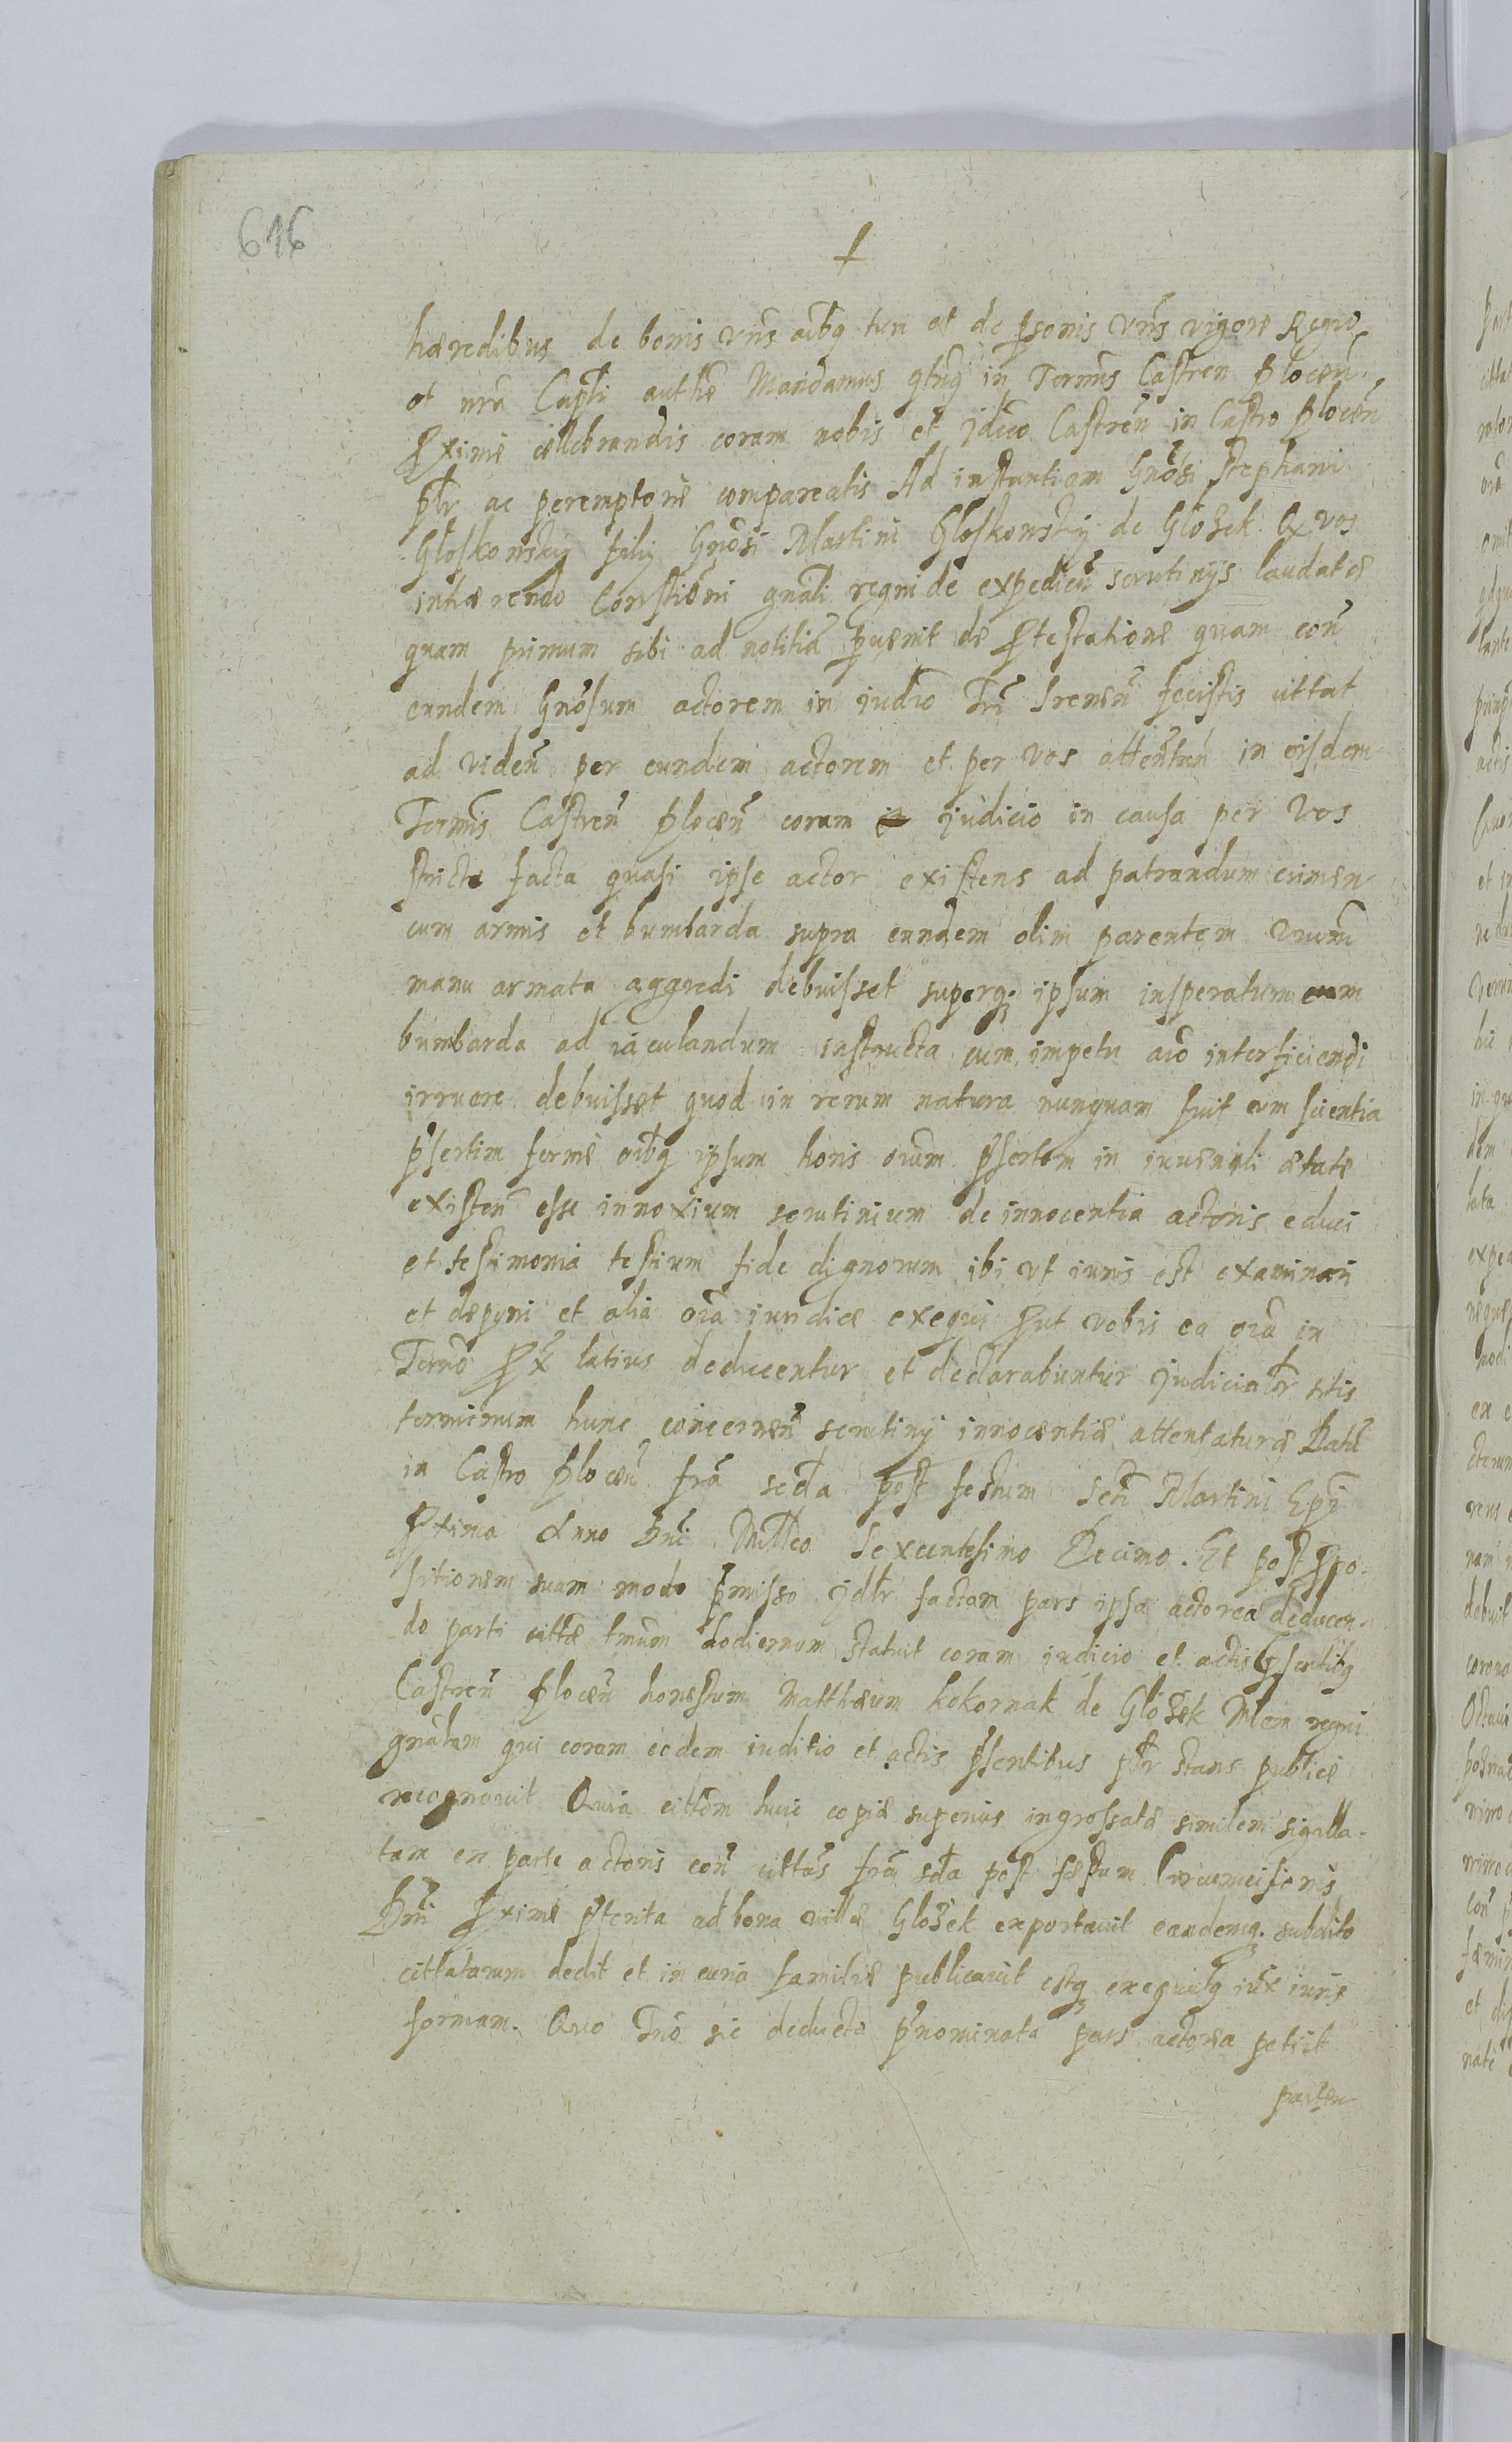 616
hæredibus de bonis vr̃is oĩbq tum et de psonis vr̃is vigore Regio
et nrã Capti authẽ Mandamus qtnq in Termis Castren Plocen̄
Pxime cellebrandis coram nobis et Jdico Castren̄ in Castro Plocen̄
plr ac peremptorie compareatis Ad instantiam Gnõsi Stephani
Gloskowsky filij Gnõsi Martini Gloskowsky de Glosek Q vos
inhærendo Constiõni gnãli regni de expedien̄ scrutinijs laudatæ
quam primum sibi ad notitiã pvenit de Ptestatione quam con̄
eundem Gnõsum actorem in iudio Trĩ Srensn̄ fecistis cittat
ad viden̄ per eundem actorem et per vos attentan̄ in eisdem
Termis Castren̄ Plocen̄ coram judicio in causa per vos
stricte facta quasi ipse actor existens ad patrandum crimen
cum armis et bumbarda supra eundem olim parentem vrum
manu armata aggredi debuisset superq; ipsum insperatum cum
bumbarda ad iaculandum instructa cum impetu aiõ interficiendi
irruere debuisset quod in rerum natura nunquam fuit cum scientia
psertim ferme oĩbq ipsum horis oium psertim in iuuenili ætate
existen̄ esse innoxium scrutinium de innocentia actoris educi
et testimonia testium fide dignorum ibi vt iuris est examinari
et deponi et alia oĩa iuridice exequi Put vobis ea oĩa in
Termo Px̃ latius deducentur et declarabuntur Judicialr sitis
terminum hunc concernen̄ scrutinij innocentiæ attentaturæ Dat̃
in Castro Plocen̄ frã secda post festum Scti Martini Epĩ
Pxima Anno Dnĩ Millẽo Sexcentesimo Decimo. Et post Ppo-
sitionem suam modo pmisso Jdlr factam pars ipsa actorea deducen-
do parti cittæ tmũm hodiernum statuit coram iudicio et actis psentibq
Castren̄ Plocen̄ honestum Matthæum Kokornak de Glosek Mlem regni
gnãlem qui coram eodem iuditio et actis psentibus plr stans publice
recognouit Quia cittõm huic copiæ superius ingrossatæ similem sigilla-
tam ex parte actoris con̄ cittãs frã scda post festum Circumcisionis
Dnĩ Pxime pterita ad bona villæ Glosek exportauit eandemq; subdito
cittatarum dedit et in curia familiæ publicauit estq exequutq iux̃ iuris
formam. Quo Tno sic deducto pnominata pars actorea petiit
partem